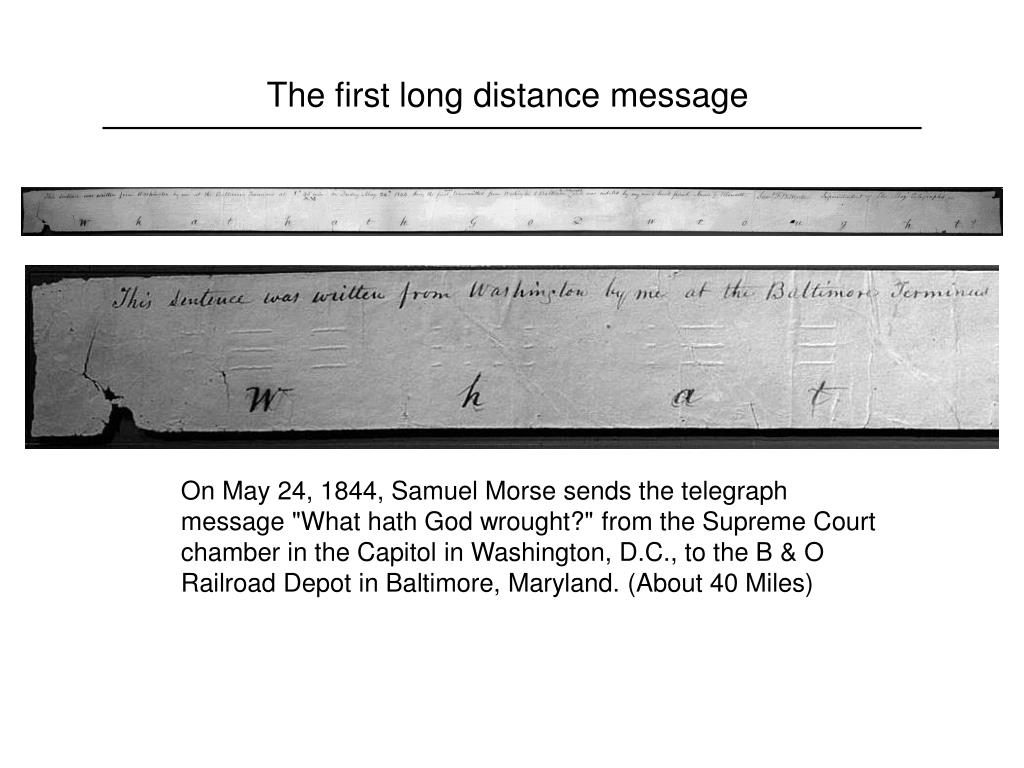 The first long distance message
This sentence was written from Washington by me at the Baltimore Terminus at
W h a t h a t h G o D w r o u g h t ?
This sentence was written from Washington by me at the Baltimore Terminus
W h a t
On May 24, 1844, Samuel Morse sends the telegraph
message "What hath God wrought?" from the Supreme Court
chamber in the Capitol in Washington, D.C., to the B & O
Railroad Depot in Baltimore, Maryland. (About 40 Miles)